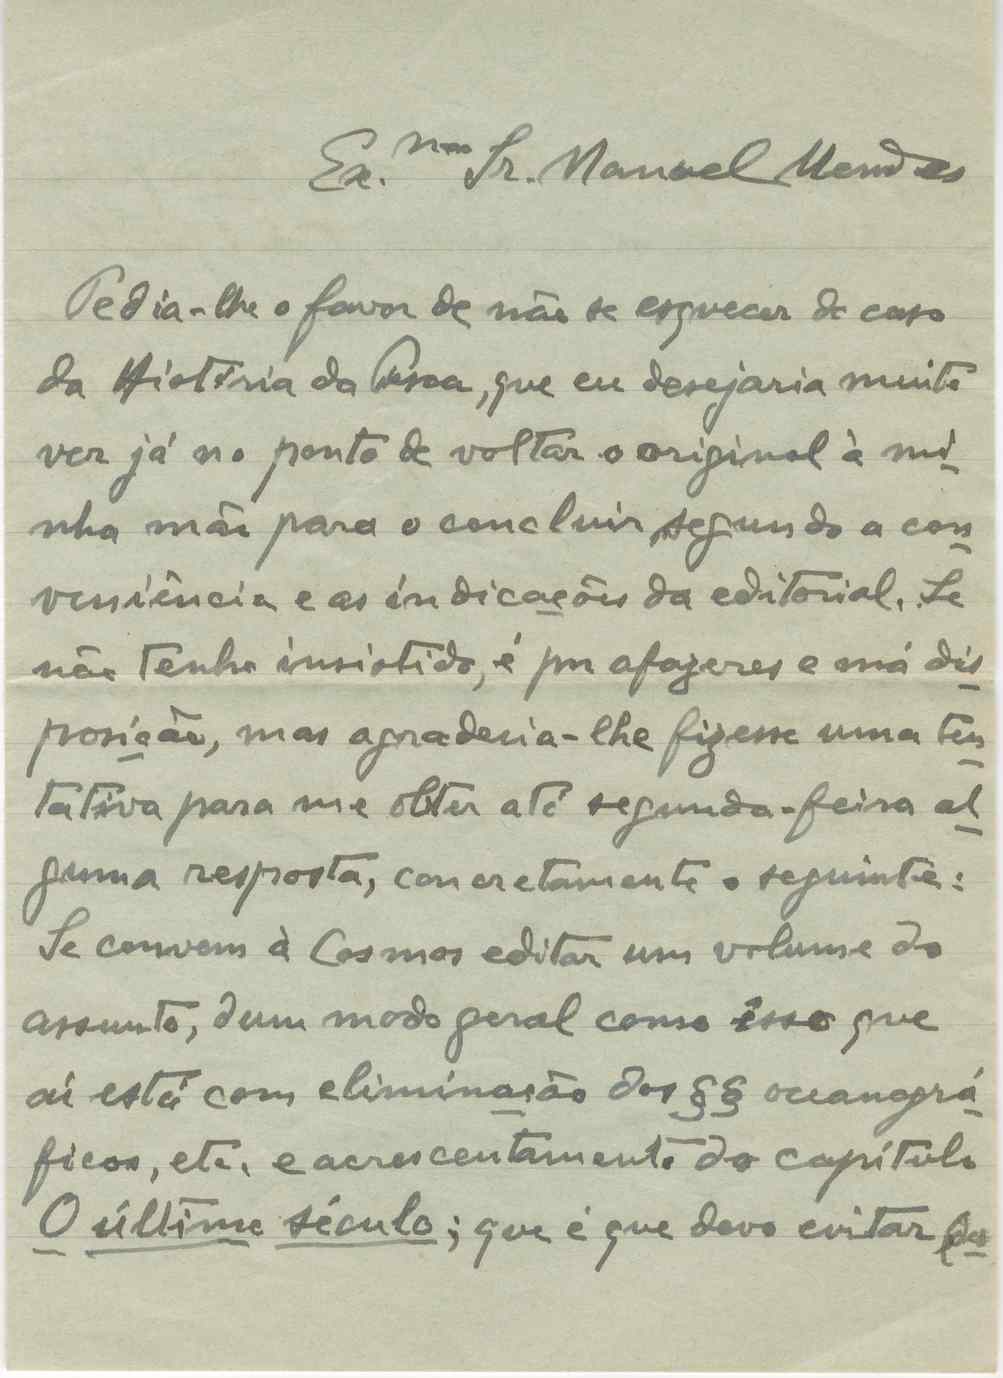 Ex.mo Sr. Manuel Mendes
Pedia-lhe o favor de não se esquecer do caso
da História da Pesca, que eu desejaria muito
ver já no ponto de voltar o original à mi-
nha mão para o concluir, segundo a con-
veniência e as indicações da editorial. Se
não tenho insistido, é por afazeres e má dis-
posição, mas agradecia-lhe fizesse uma ten-
tativa para me obter até segunda-feira al-
guma resposta, concretamente o seguinte:
Se convem à Cosmos editar um volume do
assunto, dum modo geral como isso que
aí está com eliminação dos §§ oceanográ-
ficos, etc. e acrescentamento do capítulo
O último século; que é que devo evitar